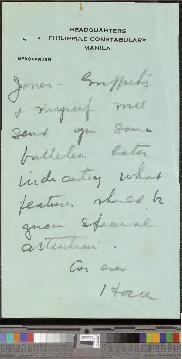 HEADQUARTERS
PHILIPPINE CONSTABULARY
MANILA
MEMORANDUM
Jones - Griffiths
& myself will
send you some
bulletin later
indicating what
features should be
given special
attention.
As ever
Hall